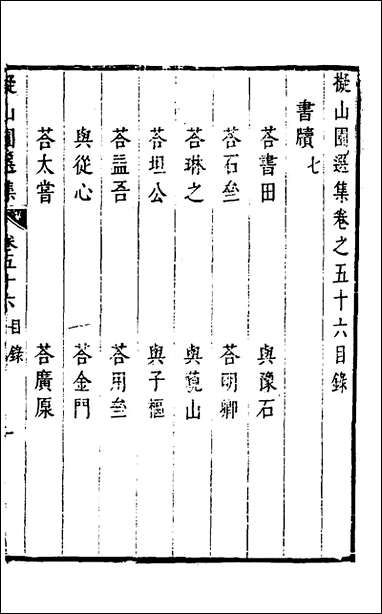 擬山園選集卷之五十六目錄
書牘七
荅書田
與豫石
荅石壵
荅明卿
荅琳之
與蒐山
荅坦公
與子樞
荅盂吾
荅用壵
與從心
荅金門
荅太嘗
荅廣原
擬山園選集
卷五十六
目錄
一